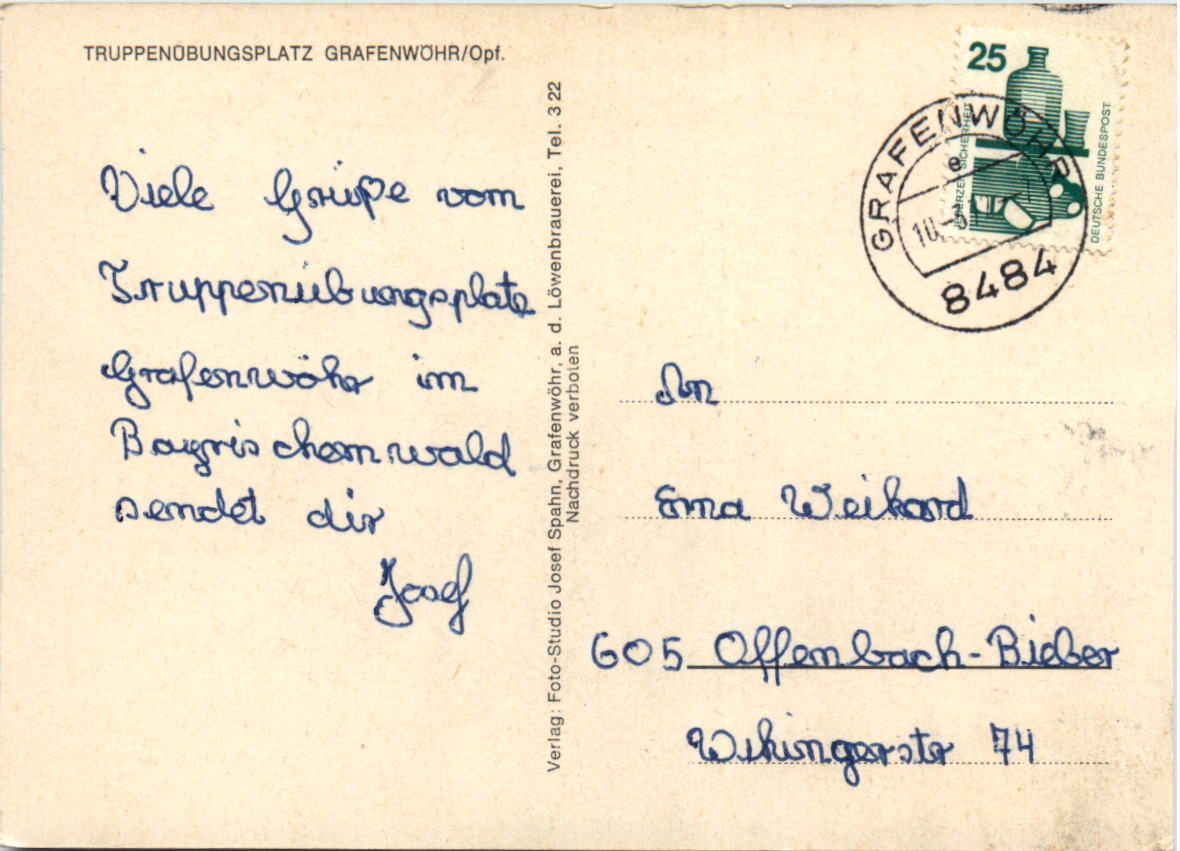 TRUPPENÜBUNGSPLATZ GRAFENWÖHR/Opf.
Viele Grüße vom
Truppenübungsplatz
Grafenwöhr im
Bayrischenwald
sendet dir
Josef
Verlag: Foto-Studio Josef Spahn, Grafenwöhr, a. d. Löwenbrauerei, Tel. 3 22
Nachdruck verboten
25
JEDERZEIT SICHERHEIT
DEUTSCHE BUNDESPOST
GRAFENWÖHR
e
8484
An
Erna Weikard
605 Offenbach-Bieber
Wikingerstr 74